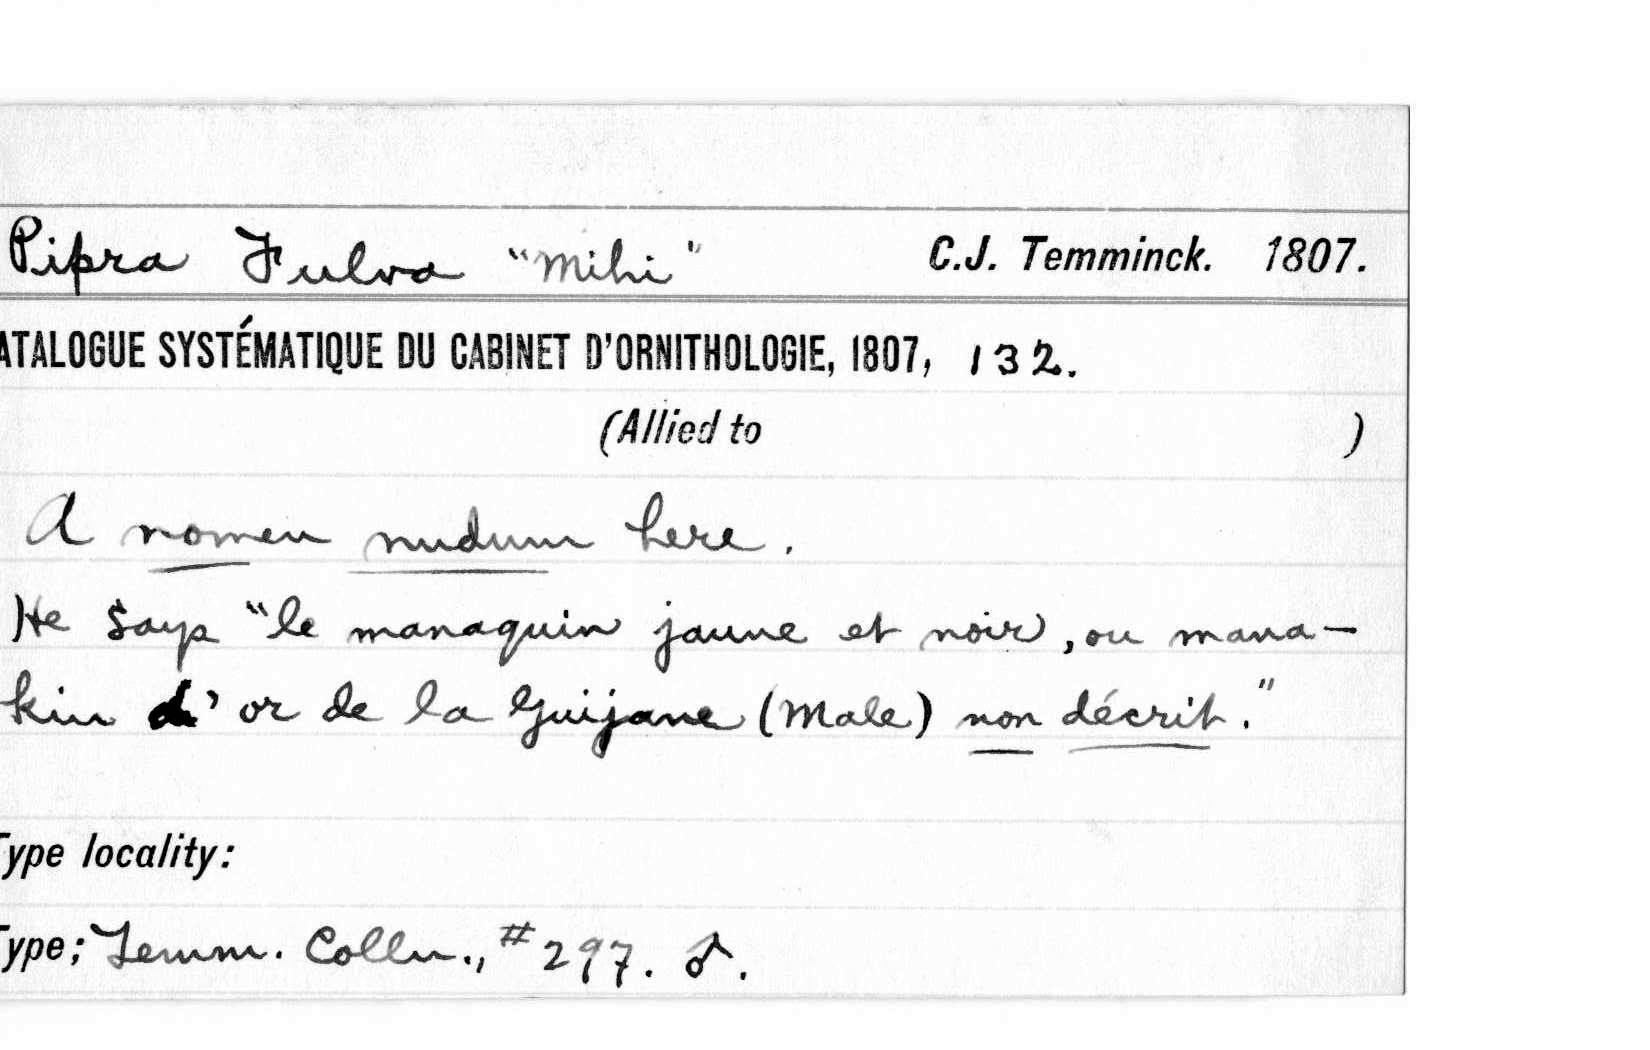 Pipra Fulva "Mihi" C.J. Temminck. 1807.
ATALOGUE SYSTÉMATIQUE DU CABINET D'ORNITHOLOGIE, 1807, 132.
(Allied to )
A nomen nudum here.
He says "le manaquin jaune et noir, ou mana-
kin d'or de la Guijane (Male) non décrit."
Type locality:
Type; Temm. Colln., #297. ♂.